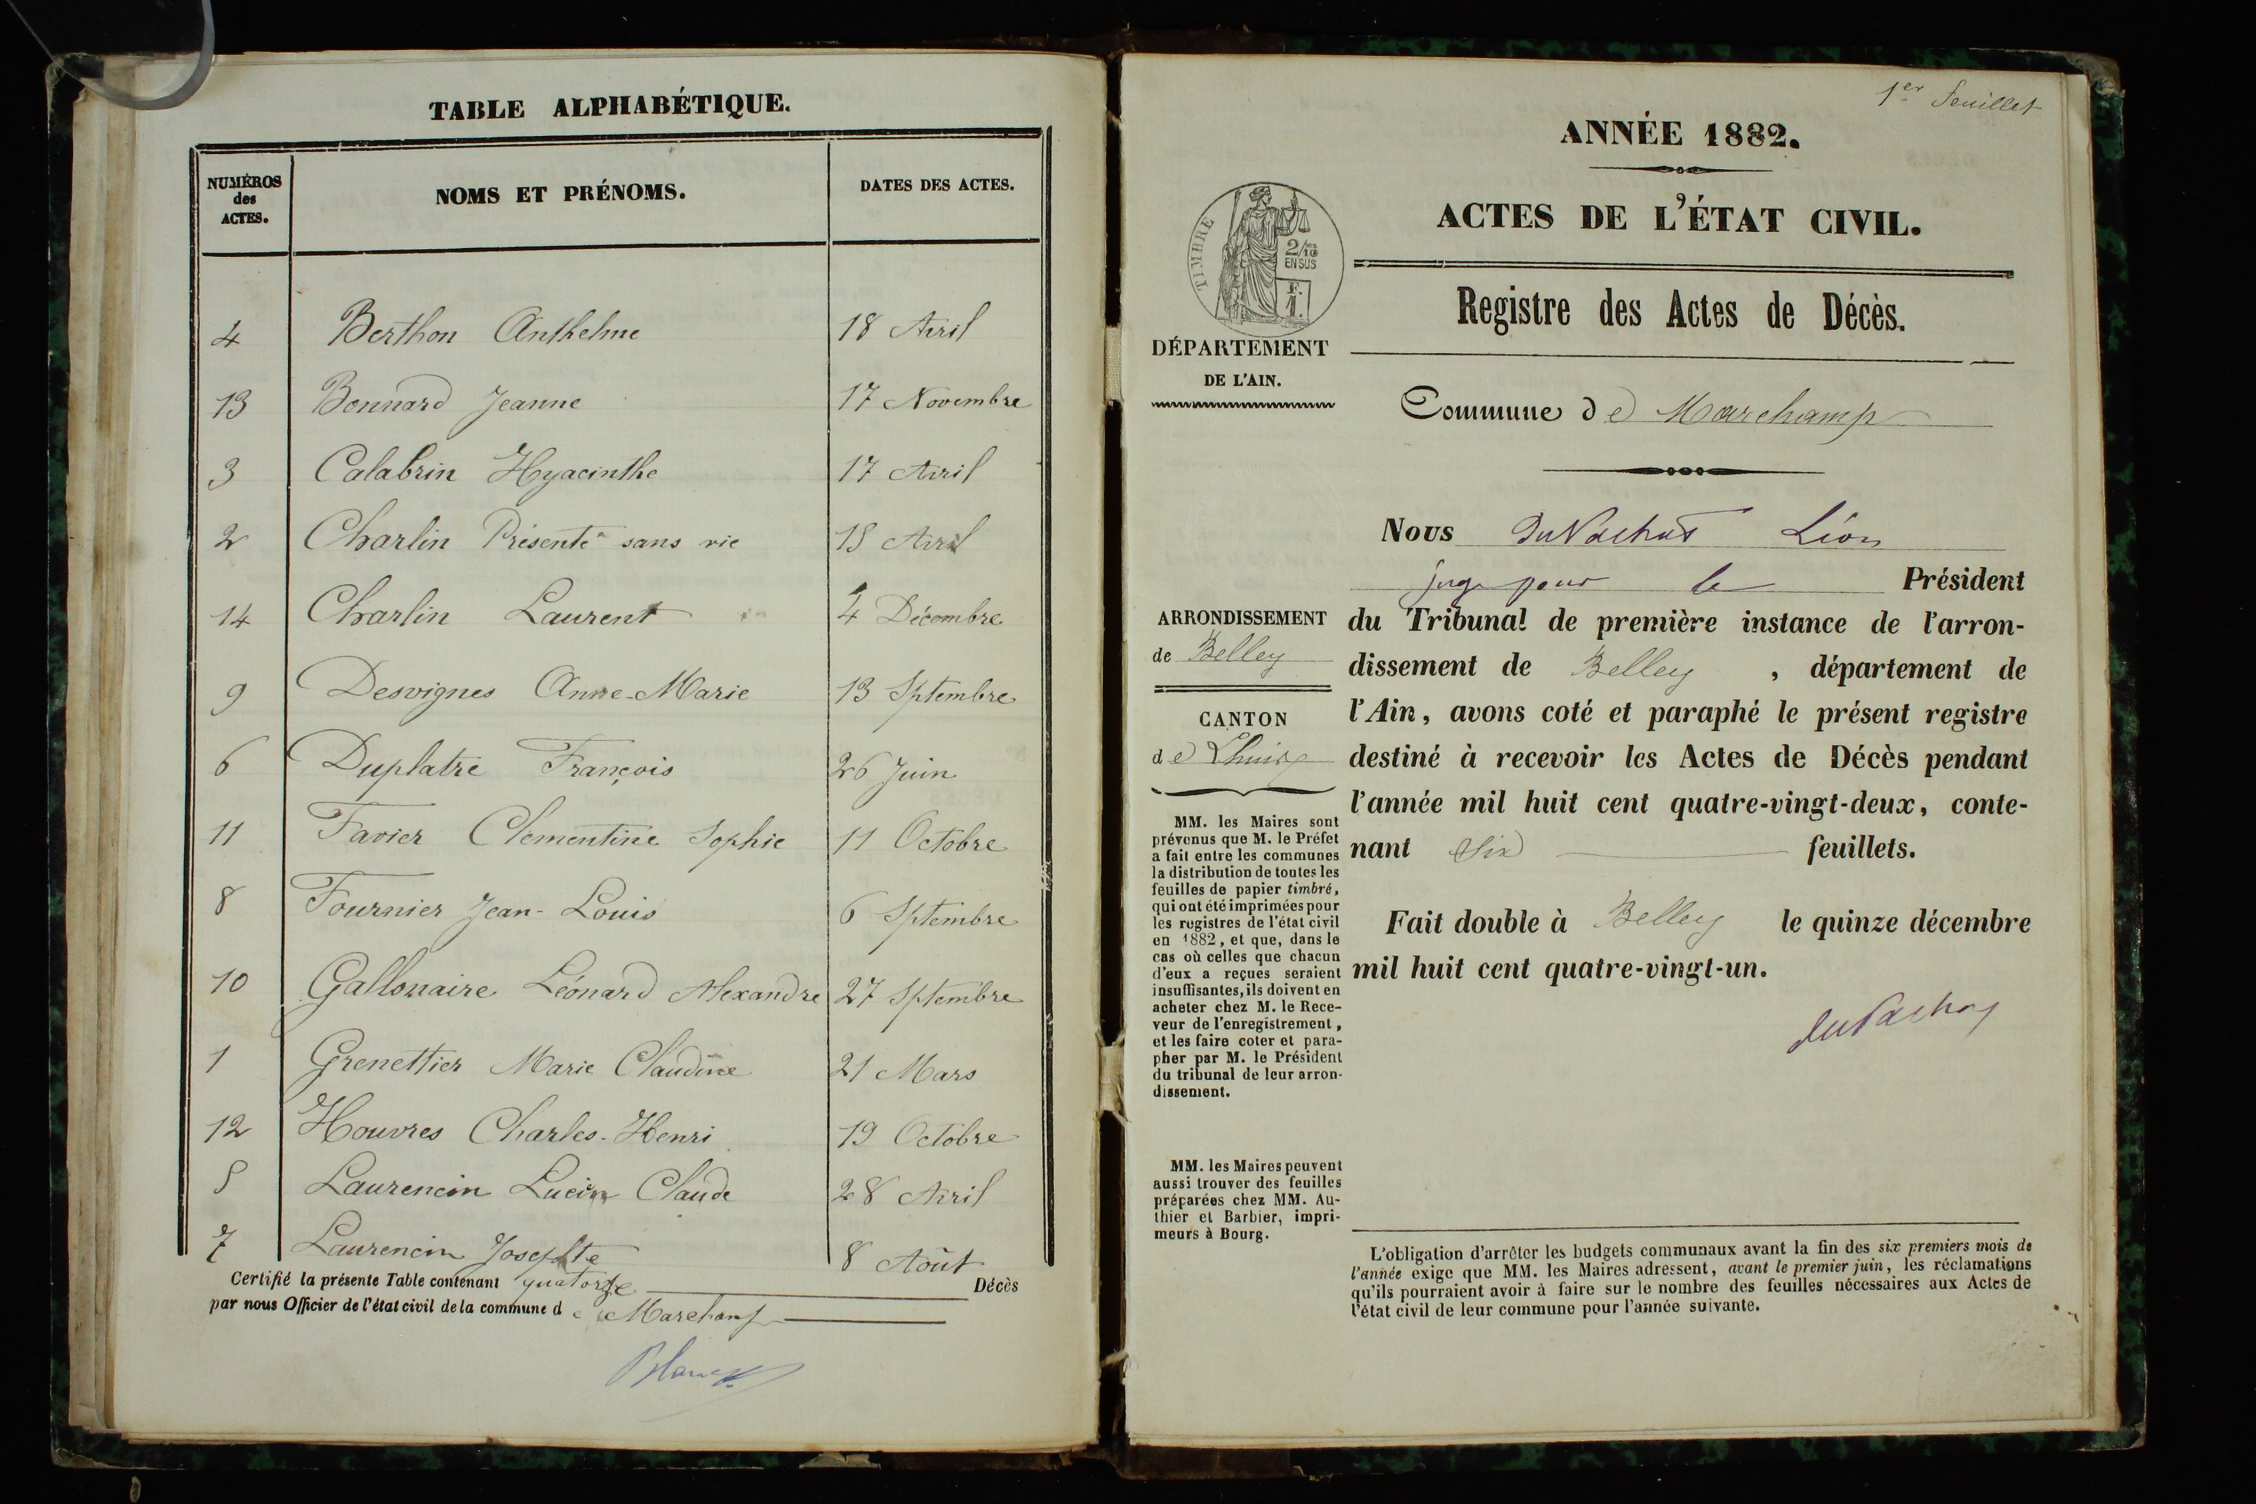 TABLE ALPHABÉTIQUE.
NUMÉROS des ACTES. NOMS ET PRÉNOMS. DATES DES ACTES.
4 Berthon Anthelme 18 Avril
13 Bonnard Jeanne 17 Novembre
3 Calabrin Hyacinthe 17 Avril
2 Charlin Présenté sans vie 15 Avril
14 Charlin Laurent 4 Décembre
9 Desvignes Anne-Marie 13 Sptembre
6 Duplatre François 26 Juin
11 Favier Clementine Sophie 11 Octobre
8 Fournier Jean-Louis 6 Sptembre
10 Gallonaire Léonard Alexandre 27 Sptembre
1 Grenettier Marie Claudine 21 Mars
12 Houvres Charles-Henri 19 Octobre
5 Laurencin Lucien Claude 28 Avril
7 Laurencin Josephte 8 Août
Certifié la présente Table contenant quatorze Décès
par nous Officier de l'état civil de la commune de Marchamp
1er feuillet
ANNÉE 1882.
ACTES DE L'ÉTAT CIVIL.
TIMBRE
2/10 EN SUS
F. 1.
Registre des Actes de Décès.
DÉPARTEMENT
DE L'AIN.
Commune de Marchamp
Nous
juge pour le Président
du Tribunal de première instance de l'arron-
dissement de Belley, département de
l'Ain, avons coté et paraphé le présent registre
destiné à recevoir les Actes de Décès pendant
l'année mil huit cent quatre-vingt-deux, conte-
nant six feuillets.
Fait double à Belley le quinze décembre
mil huit cent quatre-vingt-un.
ARRONDISSEMENT
de Belley
CANTON
de Lhuis
MM. les Maires sont
prévenus que M. le Préfet
a fait entre les communes
la distribution de toutes les
feuilles de papier timbré,
qui ont été imprimées pour
les registres de l'état civil
en 1882, et que, dans le
cas où celles que chacun
d'eux a reçues seraient
insuffisantes, ils doivent en
acheter chez M. le Rece-
veur de l'enregistrement,
et les faire coter et para-
pher par M. le Président
du tribunal de leur arron-
dissement.
MM. les Maires peuvent
aussi trouver des feuilles
préparées chez MM. Au-
thier et Barbier, impri-
meurs à Bourg.
L'obligation d'arrêter les budgets communaux avant la fin des six premiers mois de
l'année exige que MM. les Maires adressent, avant le premier juin, les réclamations
qu'ils pourraient avoir à faire sur le nombre des feuilles nécessaires aux Actes de
l'état civil de leur commune pour l'année suivante.